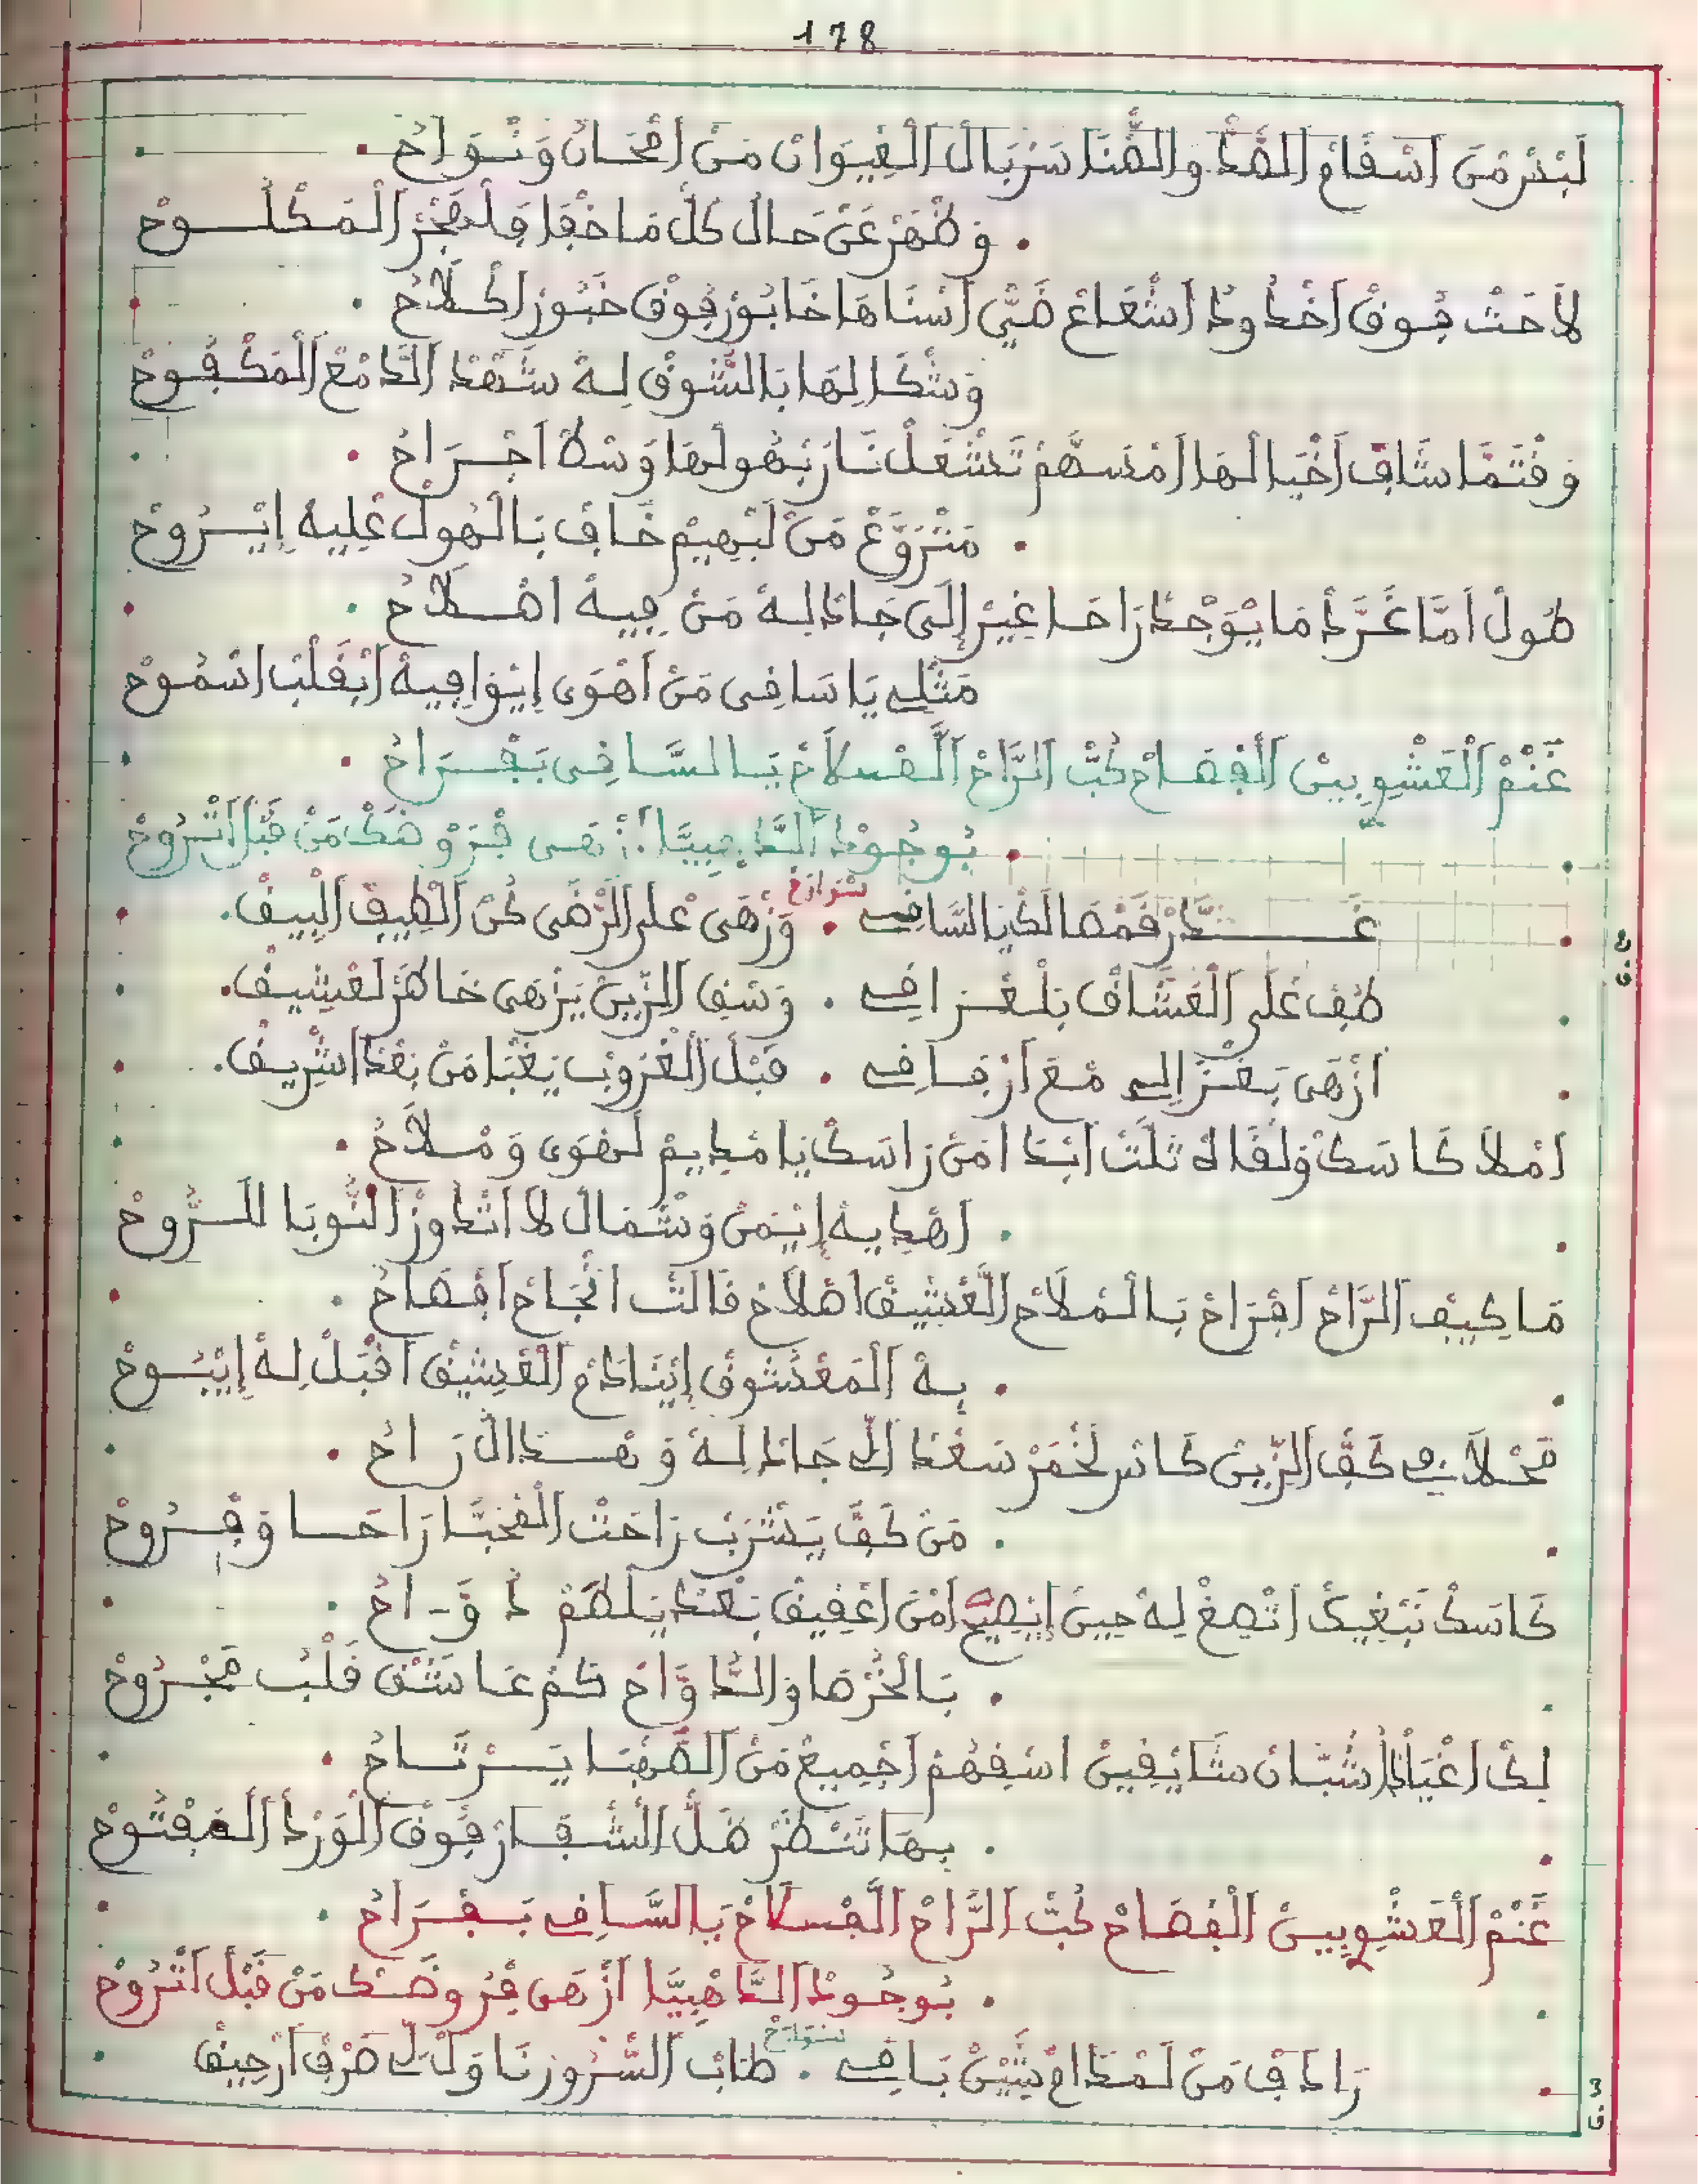 178
لَبْسْ مْنَ اَسْقَامْ الضَّدْ والضّْنَا سَرْبَالْ الْغِيوَانْ مَنْ اَمْحَانْ وَنْـوَاحْ
وَظْهَرْ عَنْ حَالْ كُلّْ مَا خْفَا فَلْهْجَرْ الْمَكْلُـوحْ
لاَحَتْ فُوقْ اَخْدُودْ اَشْعَاعْ ضَيّْ اَسْنَاهَا خَابُورْ فُوقْ خَبُورْ اكْلاَحْ
وَشْكَا لِهَا بَالشُّوقْ لِهْ شَهْدْ الدَّمْعْ الْمَكْفُوحْ
وَقْتَمَّا شَافْ اَخْيَالْهَا اَمْنَسَّهُمْ تَشْعَلْ نَارْ بْهُولْهَا وَسْطْ اَجْـرَاحْ
مَتْرَوَّعْ مَنْ لَبْهِيمْ خَافْ بَالْهُولْ عْلِيهْ اِيْـرُوحْ
طُولْ اَمَّا غَرَّدْ مَا يُوجْدْ رَاحَا غِيرْ اِلَى جَادْ لِهْ مَنْ فِيهْ اصْـلاَحْ
مَثْلِي يَا سَاقِي مَنْ اَهْوَى اِيْوَافِيهْ اَبْقَلْبْ اسْمُوحْ
غَنْمْ الْعَشْوِيِينْ الْفْصَاحْ كُبّْ الرَّاحْ الْمْسْلاَحْ يَا السَّاقِي بَفْـرَاحْ
بُوجُودْ الدَّهْبِيَّا اَزْهَى فْرَوْضَكْ مَنْ قْبَلْ اَتْرُوحْ
سْوَارَحْ
غَـــدَّرْ قَمْصَالَكْ يَا السَّاقِي . وَزْهَى عْلَى الرّْضَى كُنْ الْطِيفْ الْبِيقْ.
طُفْ عْلَى الْعَشَّاقْ بَلْعْرَاقِي . وَسْقِ الزِّينْ يَزْهَى خَاطَرْ لَعْشِيقْ.
اَزْهَى بَغْزَالِي مْعَ اَرْفَاقِي . قَبْلْ الْغْرُوبْ يَغْبَا مَنْ بَعْدْ اشْرِيقْ.
اَمْلاَ كَاسَكْ وَلْقَاهْ تَلَّتْ اَبْدَا اَمَنْ رَاسَكْ يَا مْدِيمْ لَهْوَى وَمْـلاَحْ
اَهْدِيهْ اِيْمَنْ وَشْمَالْ لاَ اَتْدُورْ النُّوبَا لَلـرُّوحْ
مَا كِيفْ الرَّاحْ اَفْرَاحْ بَالْمْلاَحْ الْعْشِيقْ اَصْلاَحْ قَالَتْ اَنْجَاحْ اَفْصَاحْ
بِهْ الْمَعْشُوقْ اِيْنَادَمْ الْعْشِيقْ اَقْبَلْ لِهْ اِيْبُـوحْ
مَحْلاَ فِي كَفّْ الزِّينْ كَاسْ لَخْمَرْ سَعْدْ اللّي جَادْ لِهْ وَهْـدَا الْرَاحْ
مَنْ كَفّْ يَشْرَبْ رَاحَتْ الْمْحَبَّا رَاحَـا وَفْـرُوحْ
كَاسَكْ نَبْغِيكْ اَتْصِغْ لِهْ حِينْ اِيْصِيحْ اَمَنْ اَعْقِيقْ بَعْدْ يَلْطَمْ دَوَّاحْ
بَالْخُرْصَا وَالدَّوَّاحْ كَمْ عَاشَقْ قَلْبُ مَجْـرُوحْ
لَكْ اَغْيَادْ اَشْبَّانْ شَايْفِينْ اسْقِهُمْ اَجْمِيعْ مَنْ الصَّهْبَا يَـرْتَـاحْ
بِهَا تَنْظَرْ ضَلّْ الْشْفَـارْ فُوقْ الْوَرْدْ الْمَفْتُوحْ
غَنْمْ الْعَشْوِيِينْ الْفْصَاحْ كُبّْ الرَّاحْ الْمْسْلاَحْ يَا السَّاقِي بَـفْـرَاحْ
بُوجُودْ الدَّهْبِيَّا اَزْهَى فْرُوضَـكْ مَنْ قْبَلْ اَتْرُوحْ
سْوَارَحْ
رَادَفْ مَنْ لَمْدَامْ بَنِينْ بَاقِي . طَابْ السّْرُورْ نَاوَلْ لِي صَرْفْ اَرْحِيقْ